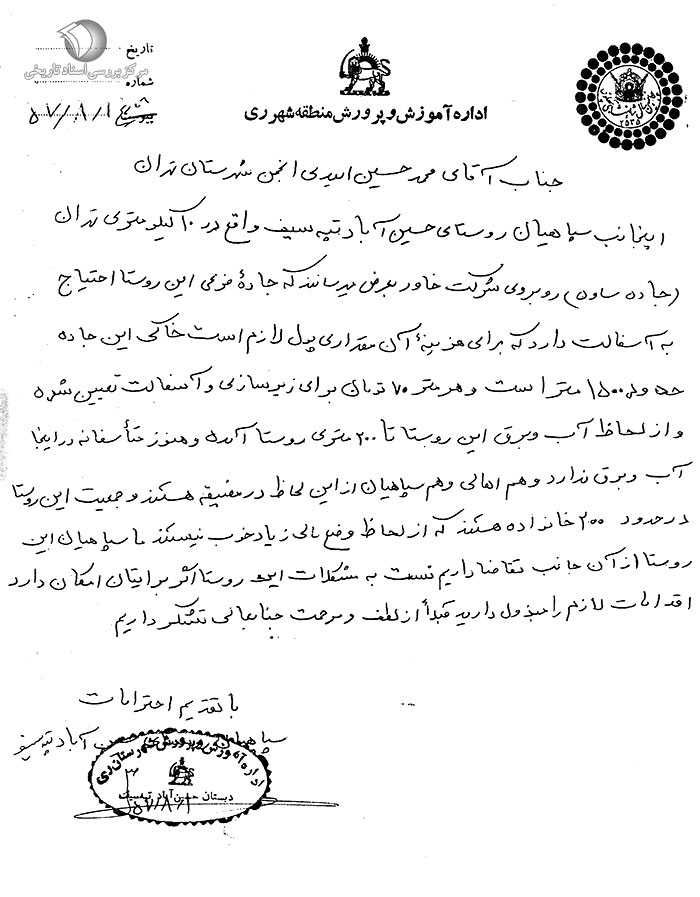 مرکز بررسی اسناد تاریخی
تاریخ
شماره
۵۷/۸/۱
اداره آموزش و پرورش منطقه شهر ری
۲۵۳۵
جناب آقای محمد حسین اسدی انجمن شهرستان تهران
اینجانب سپاهیان روستای حسین آباد تپه سیف واقع در ۱۰ کیلومتری تهران
(جاده ساوه) روبروی شرکت خاور بعرض میرسانند که جادهٔ فرعی این روستا احتیاج
به آسفالت دارد که برای هزینهٔ آن مقداری پول لازم است خاکی این جاده
حدود ۱۵۰۰ متر است و هر متر ۷۰ تومان برای زیرسازی و آسفالت تعیین شده
و از لحاظ آب و برق این روستا تا ۲۰۰ متری روستا آمده و هنوز متأسفانه در اینجا
آب و برق ندارد و هم اهالی و هم سپاهیان از این لحاظ در مضیقه هستند و جمعیت این روستا
در حدود ۲۰۰ خانواده هستند که از لحاظ وضع مالی زیاد خوب نیستند ما سپاهیان این
روستا از آن جانب تقاضا داریم نسبت به مشکلات این روستا اگر برایتان امکان دارد
اقدامات لازم را مبذول دارید قبلاً از لطف و مرحمت جنابعالی تشکر داریم
با تقدیم احترامات
سپاهیان حسین آباد تپه سیف
اداره آموزش و پرورش شهرستان ری
دبستان حسین آباد تپه سیف
۵۷/۸/۱